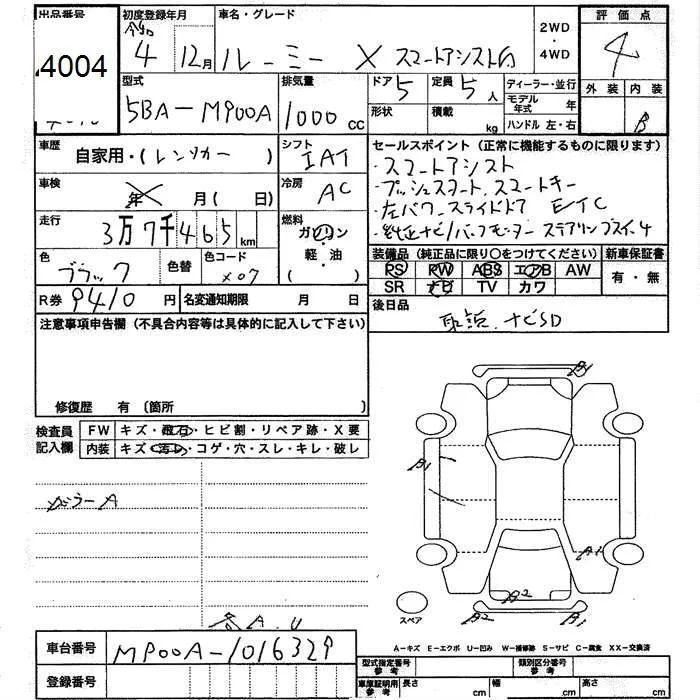 出品番号 初度登録年月 車名・グレード 2WD・4WD 評価点
4004 4年 12月 ルーミー X スマートアシスト 4
外装 内装
B
型式 排気量 ドア 5 定員 5人 ディーラー・並行
5BA-M900A 1000cc 形状 積載 kg モデル年式 年
ハンドル 左・右
車歴 自家用・(レンタカー) シフト IAT セールスポイント(正常に機能するものに限ります)
・スマートアシスト
車検 年 月(日) 冷房 AC ・プッシュスタート、スマートキー
・左パワースライドドア ETC
走行 3万7千465km 燃料 ガソリン・軽油 ( ) ・純正ナビ/バックモニター ステアリングスイッチ
色 ブラック 色替 色コード X07 装備品(純正品に限り○をつけてください) 新車保証書
PS PW ABS エアB AW 有・無
SR ナビ TV カワ
R券 9410円 名変通知期限 月 日 後日品
取説、ナビSD
注意事項申告欄(不具合内容等は具体的に記入して下さい)
修復歴 有 〔箇所 〕
検査員記入欄 FW キズ・飛石・ヒビ割・リペア跡・X要
内装 キズ・汚レ・コゲ・穴・スレ・キレ・破レ
A1
B1
ガラーA
A1
B2
B2 B1
スペア
各A.U
A-キズ E-エクボ U-凹み W-補修跡 S-サビ C-腐食 XX-交換済
車台番号 M900A-1016329
型式指定番号 参考 類別区分番号 参考
登録番号 車庫証明用 参考 長さ cm 幅 cm 高さ cm